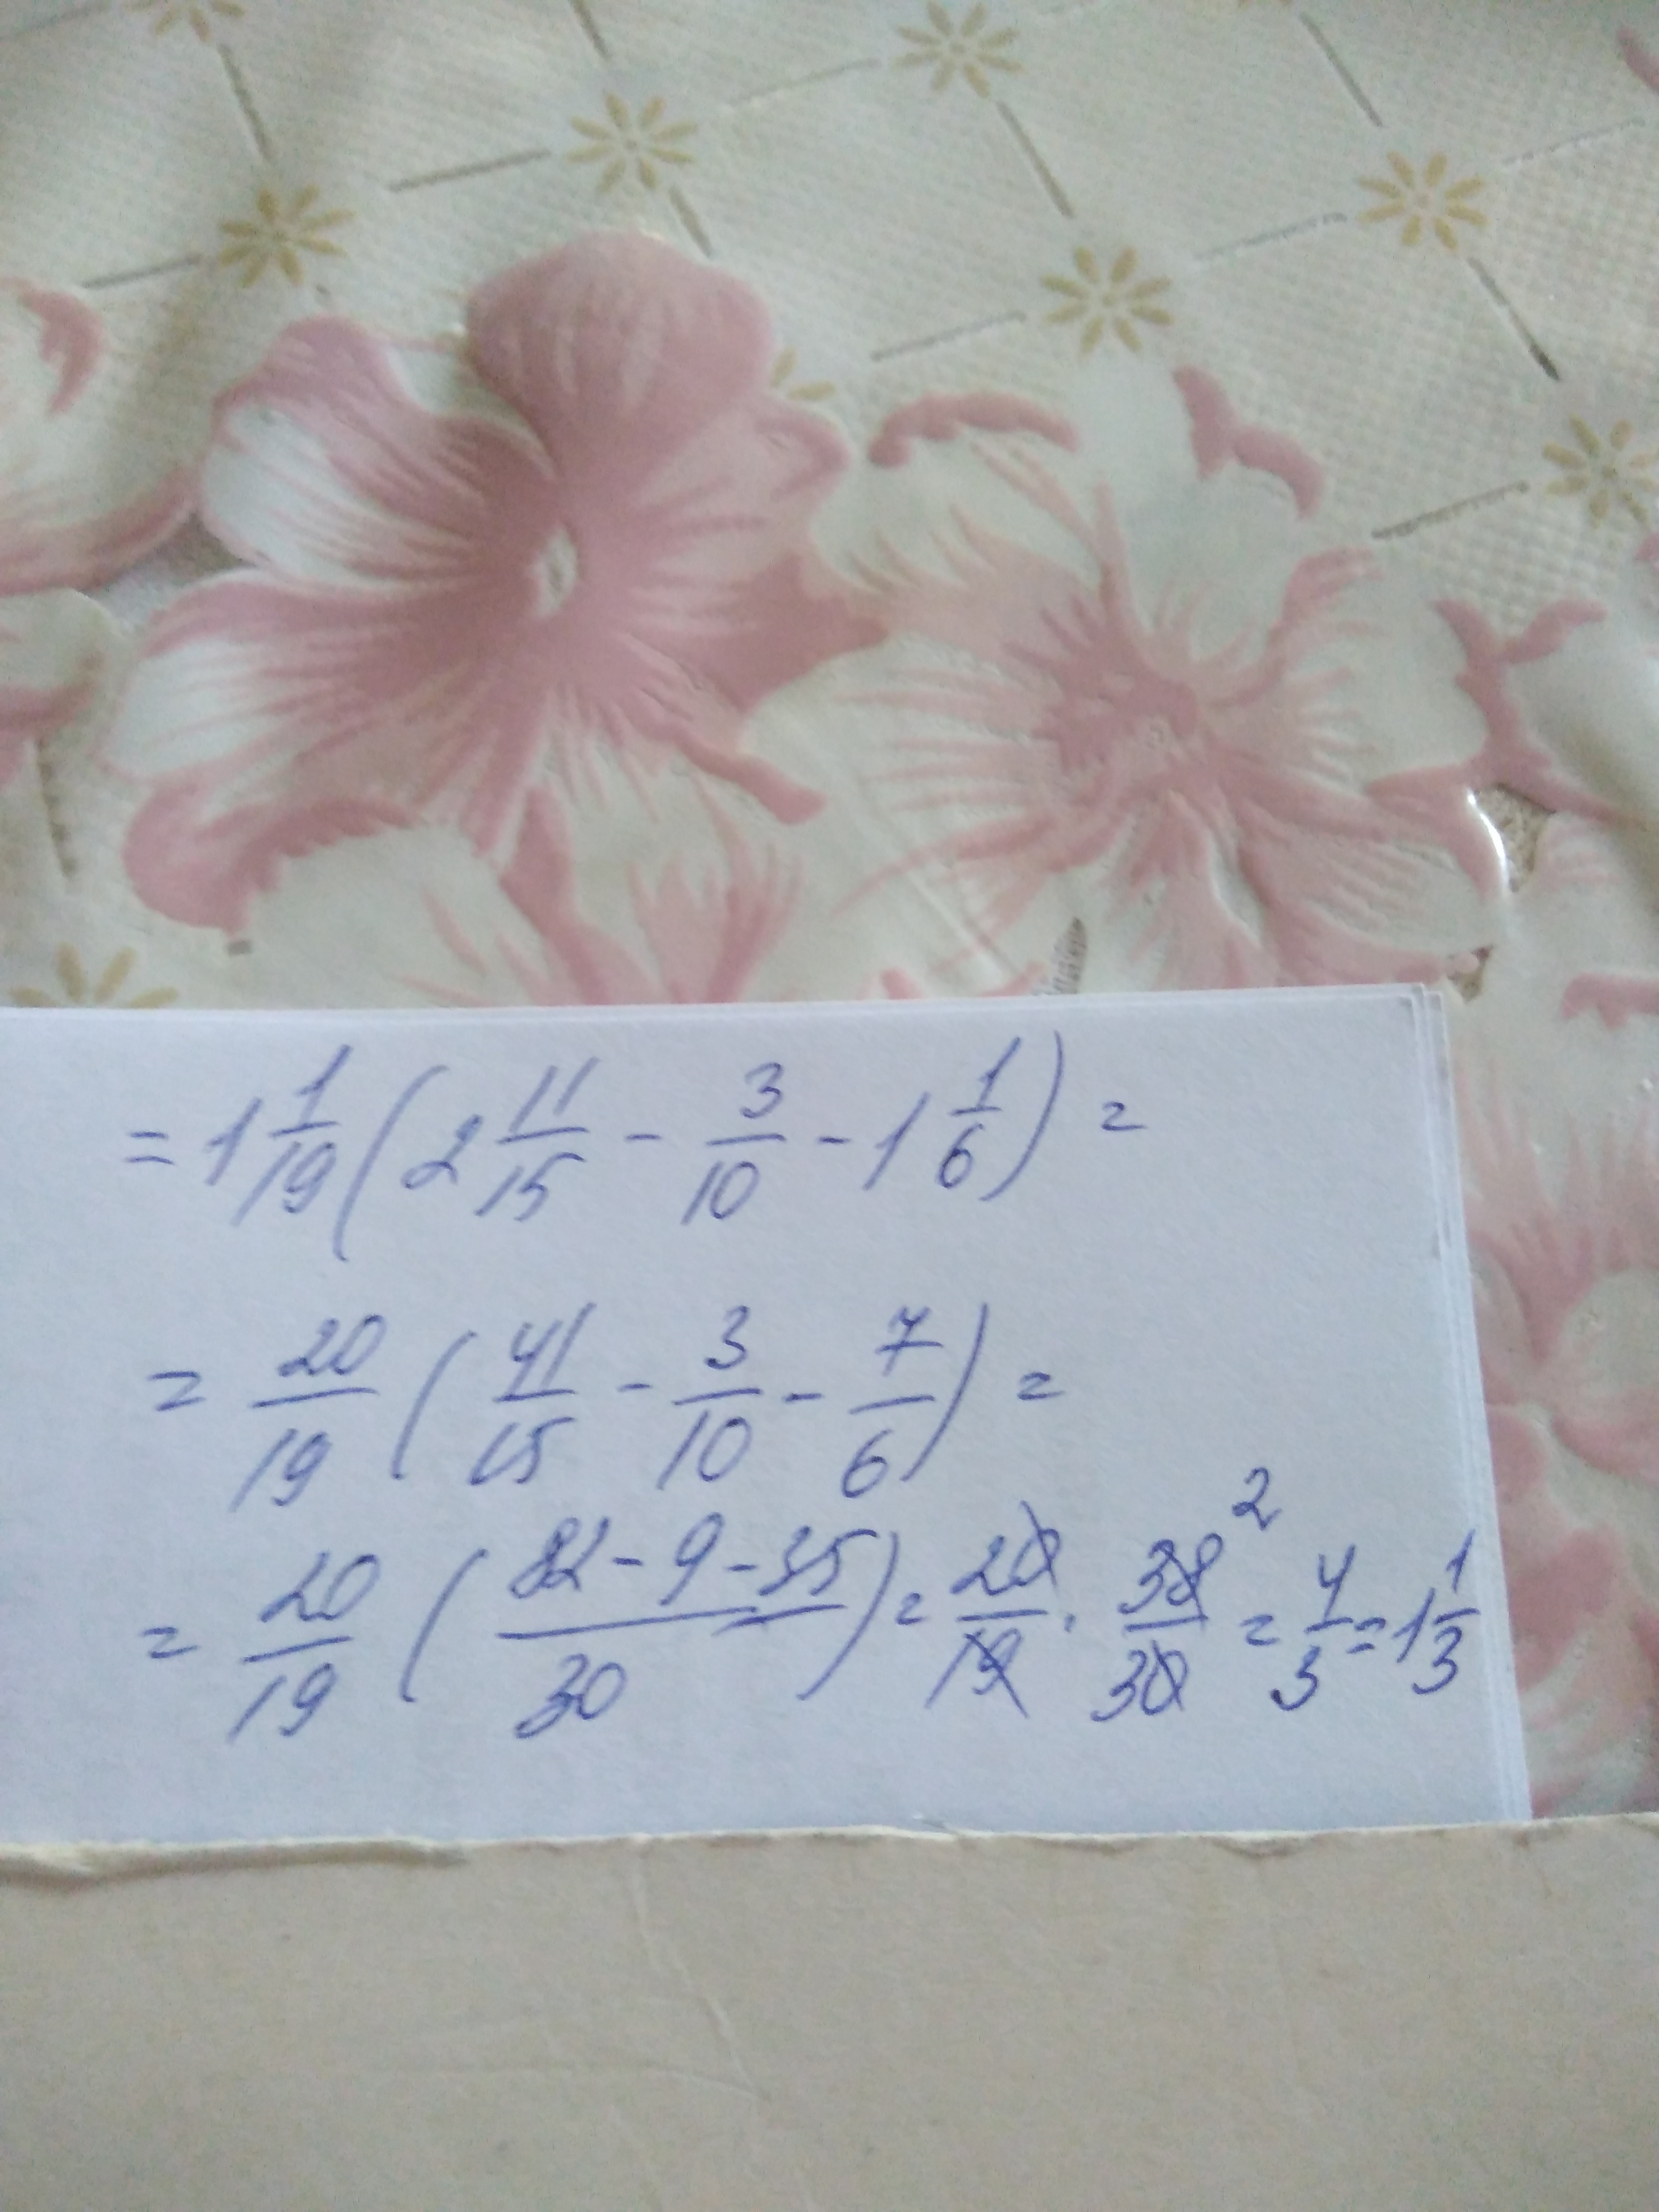 = 1 1/19 ( 2 11/15 - 3/10 - 1 1/6 ) =
= 20/19 ( 41/15 - 3/10 - 7/6 ) =
= 20/19 ( 82 - 9 - 35 / 30 ) = 20/19 · 38/30 2 = 4/3 = 1 1/3